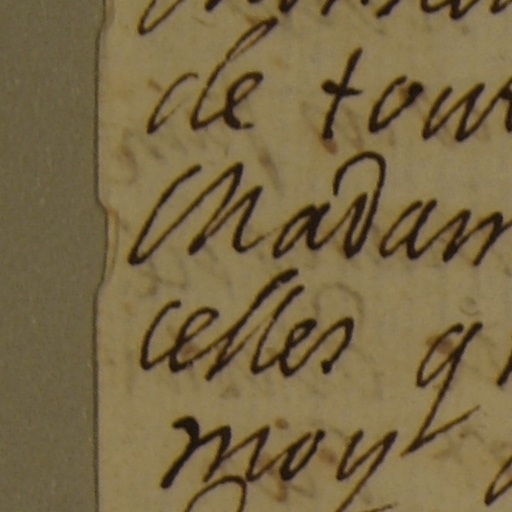 de tou
Madam
celles q
moy